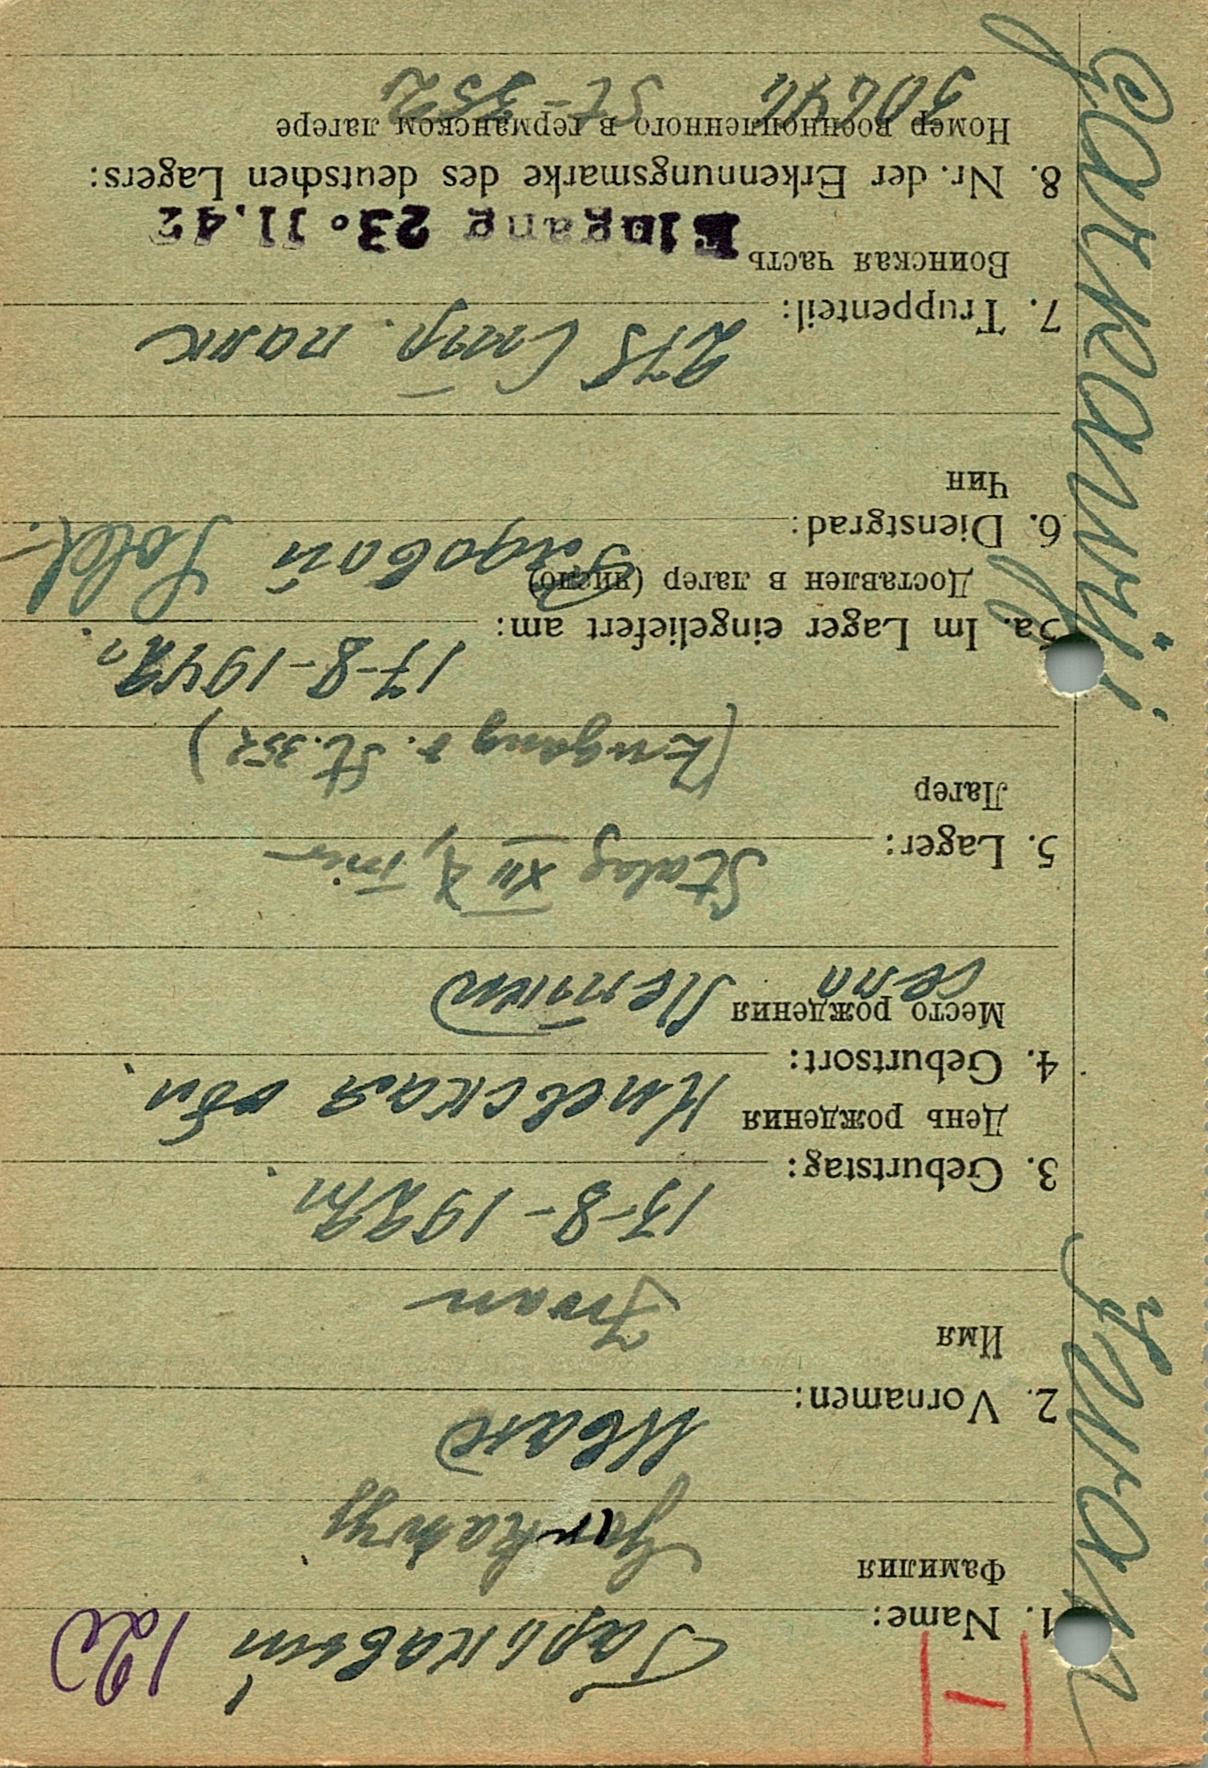 Garkawij Iwan
H
1. Name: Гарькавый 12c
Фамилия
Garkawyj
Иван
2. Vornamen:
Имя
Iwan
13-8-1922г.
3. Geburtstag:
День рождения Киевская обл.
4. Geburtsort:
Место рождения
село
5. Lager: Stalag XII F,
Лагер
(Zugang v. St. 352)
17-8-1942г.
5a. Im Lager eingeliefert am:
Доставлен в лагер (число)
6. Dienstgrad: Рядовой Sold.
Чин
275 Стр. полк
7. Truppenteil:
Воинская часть Eingang 23. 11. 42
8. Nr. der Erkennungsmarke des deutschen Lagers:
Номер военнопленного в германском лагере
St-352